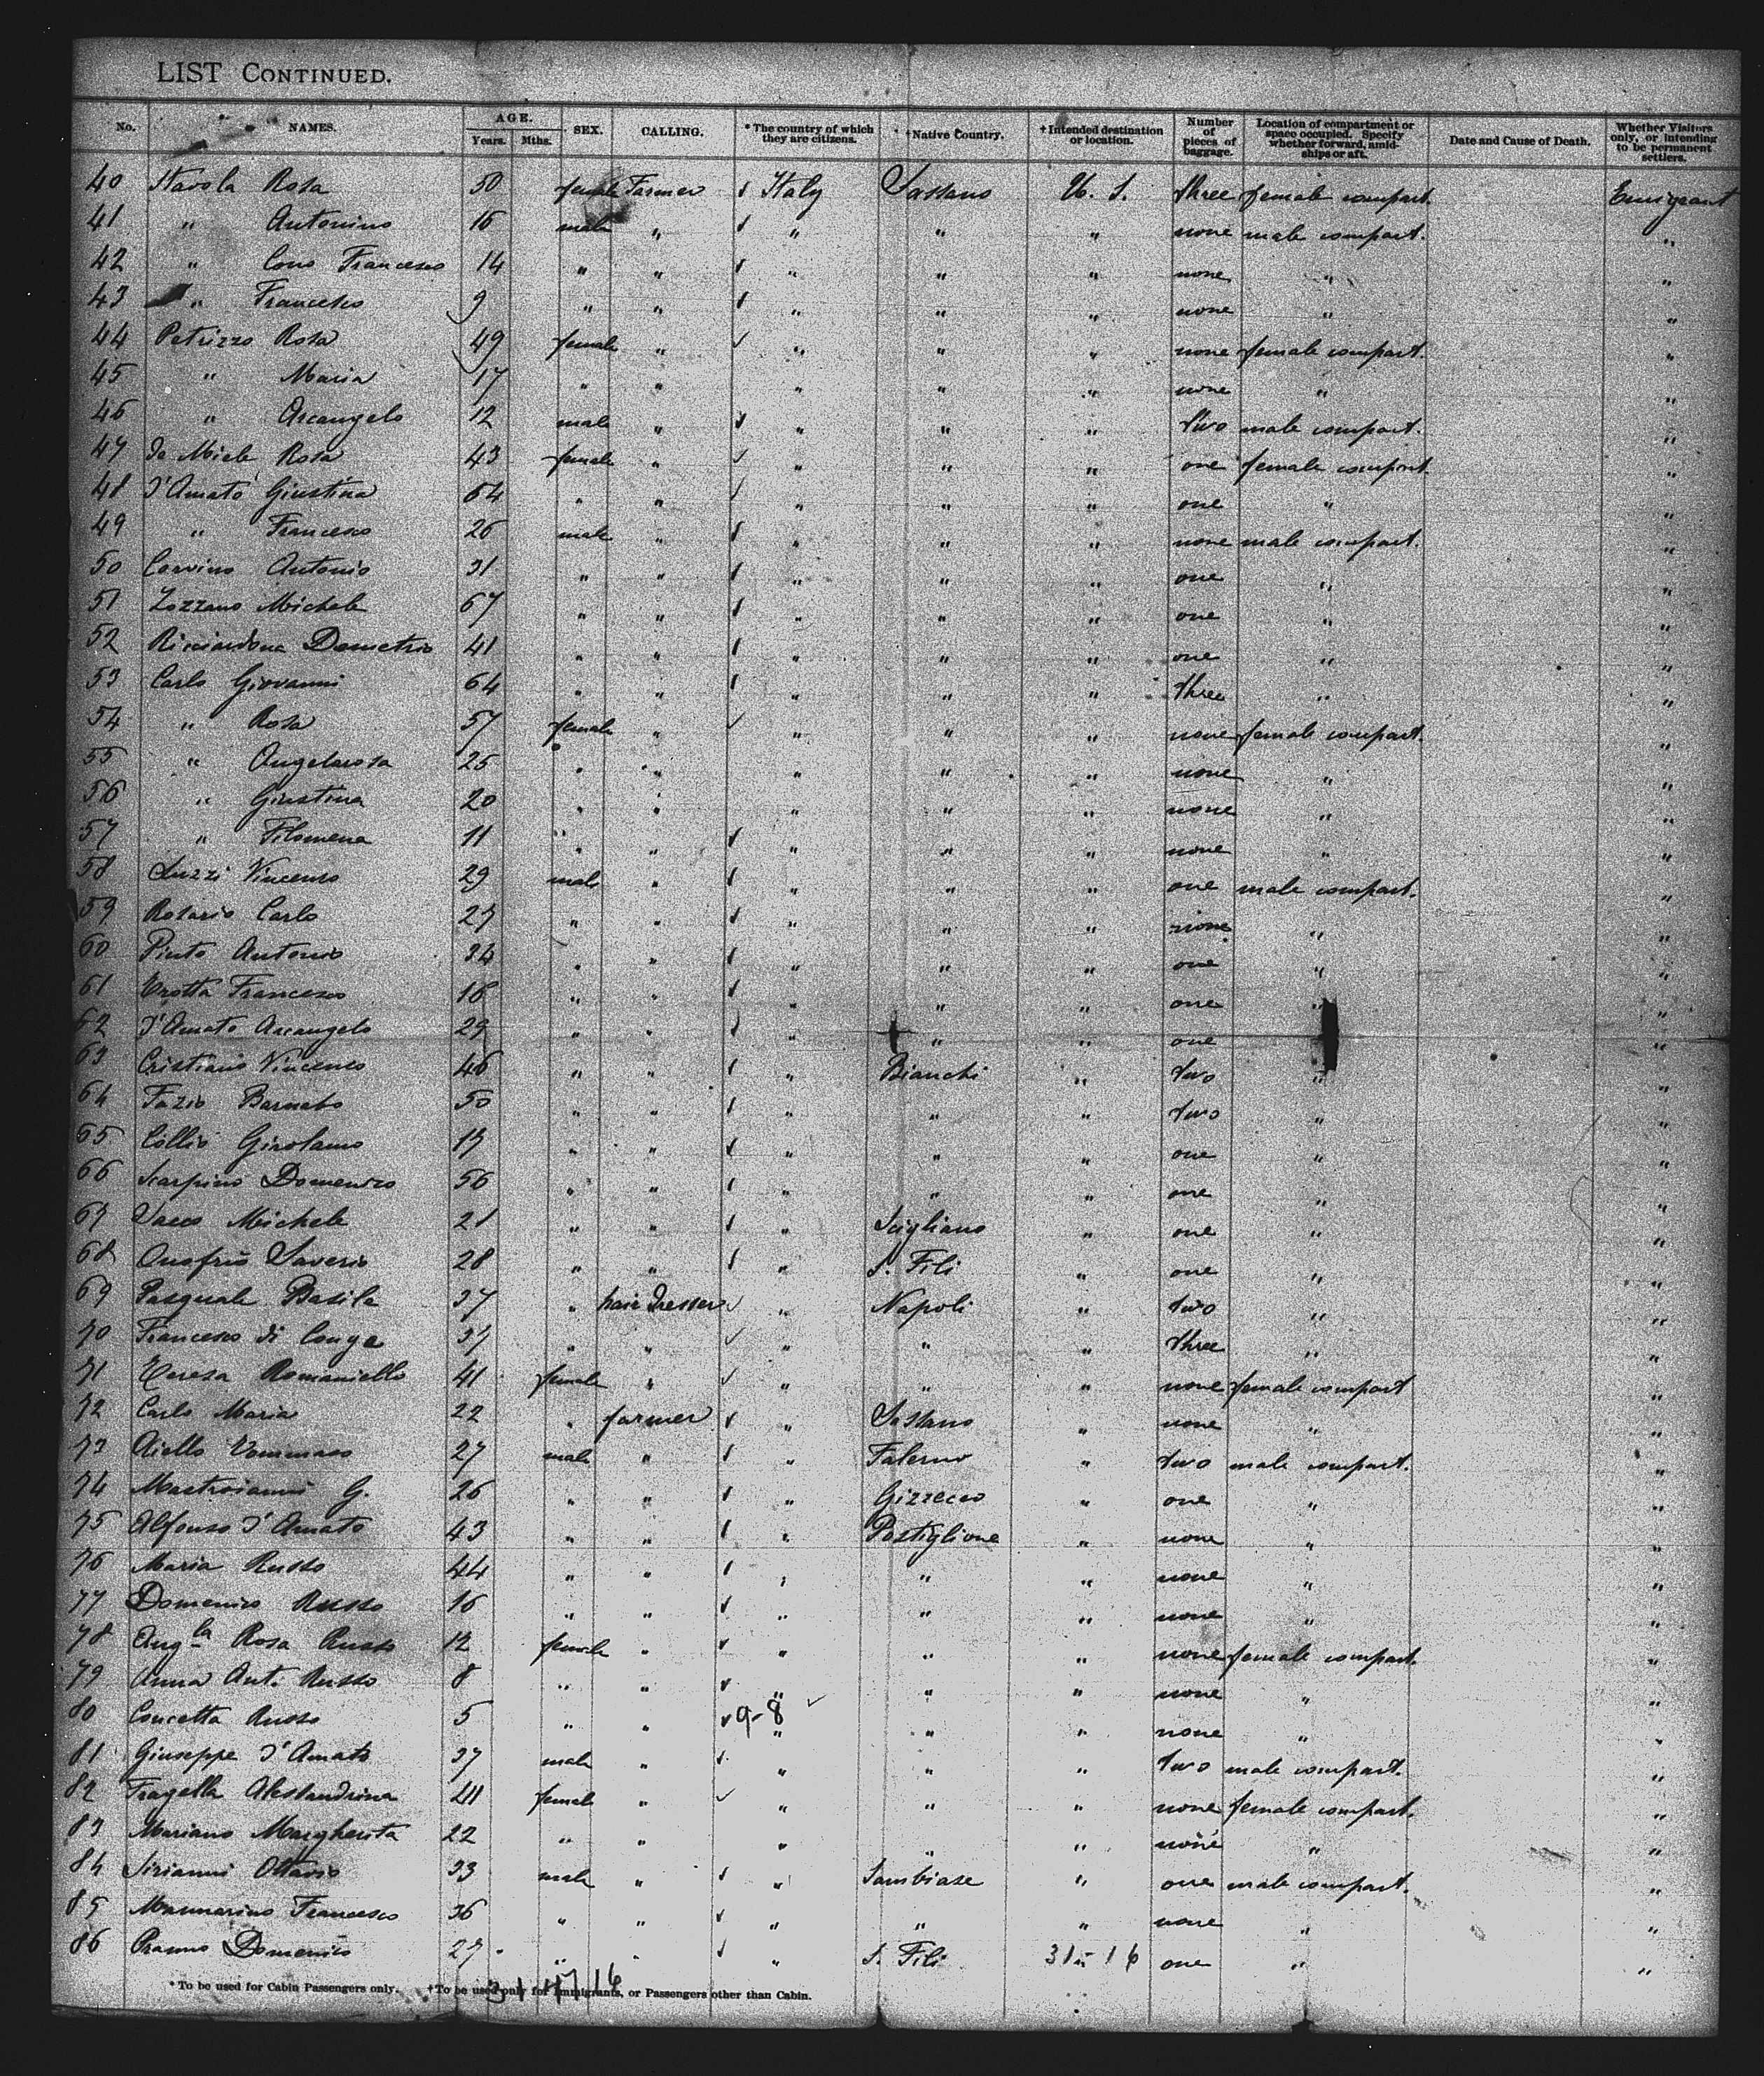 LIST CONTINUED.
No. NAMES. AGE. Years. Mths. SEX. CALLING. * The country of which they are citizens. † Native Country. † Intended destination or location. Number of pieces of baggage. Location of compartment or space occupied. Specify whether forward, amidships or aft. Date and Cause of Death. Whether Visitors only, or intending to be permanent settlers.
40 Stavola Rosa 50 female Farmer Italy Sassano U. S. three female compart. Emigrant
41 " Antonino 16 male " " " " none male compart. "
42 " Cono Francesco 14 " " " " " none " "
43 " Francesco 9 " " " " " none " "
44 Petrizzo Rosa 49 female " " " " none female compart. "
45 " Maria 17 " " " " " none " "
46 " Arcangelo 12 male " " " " two male compart. "
47 De Miele Rosa 43 female " " " " one female compart. "
48 D'Amato Giustina 64 " " " " " one " "
49 " Francesco 26 male " " " " none male compart. "
50 Corvino Antonio 31 " " " " " one " "
51 Zozzano Michele 67 " " " " " one " "
52 Ricciardone Demetrio 41 " " " " " one " "
53 Carlo Giovanni 64 " " " " " three " "
54 " Rosa 57 female " " " " none female compart. "
55 " Angelarosa 25 " " " " " none " "
56 " Giustina 20 " " " " " none " "
57 " Filomena 11 " " " " " none " "
58 Luzzi Vincenzo 29 male " " " " one male compart. "
59 Rosario Carlo 27 " " " " " none " "
60 Pinto Antonio 24 " " " " " one " "
61 Trotta Francesco 16 " " " " " one " "
62 D'Amato Arcangelo 29 " " " " " one " "
63 Cristiano Vincenzo 46 " " " Bianchi " two " "
64 Fazio Barnabo 50 " " " " " two " "
65 Collio Girolamo 17 " " " " " one " "
66 Scarpino Domenico 56 " " " " " one " "
67 Sacco Michele 21 " " " Scigliano " one " "
68 Onofrio Saverio 28 " " " S. Fili " one " "
69 Pasquale Basile 37 " hair dresser " Napoli " two " "
70 Francesco di Conge 37 " " " " " three " "
71 Teresa Romaniello 41 female " " " " none female compart "
72 Carlo Maria 22 " farmer " Sassano " none " "
73 Aiello Tommaso 27 male " " Falerno " two male compart. "
74 Mastroianni G. 26 " " " Gizzeceo " one " "
75 Alfonso D'Amato 43 " " " Postiglione " none " "
76 Maria Russo 44 " " " " " none " "
77 Domenico Russo 16 " " " " " none " "
78 Ang.la Rosa Russo 12 female " " " " none female compart. "
79 Anna Ant. Russo 8 " " " " " none " "
80 Concetta Russo 5 " " 9-8 " " " none " "
81 Giuseppe D'Amato 37 male " " " " two male compart. "
82 Fragella Alessandrina 41 female " " " " none female compart. "
83 Mariano Margherita 22 " " " " " none " "
84 Sirianni Ottavio 33 male " " Sambiase " one male compart. "
85 Mannarino Francesco 36 " " " " " none " "
86 Pranno Domenico 27 " " " S. Fili 31 - 16 one " "
* To be used for Cabin Passengers only. † To be used only for Immigrants, or Passengers other than Cabin.
31 47 16